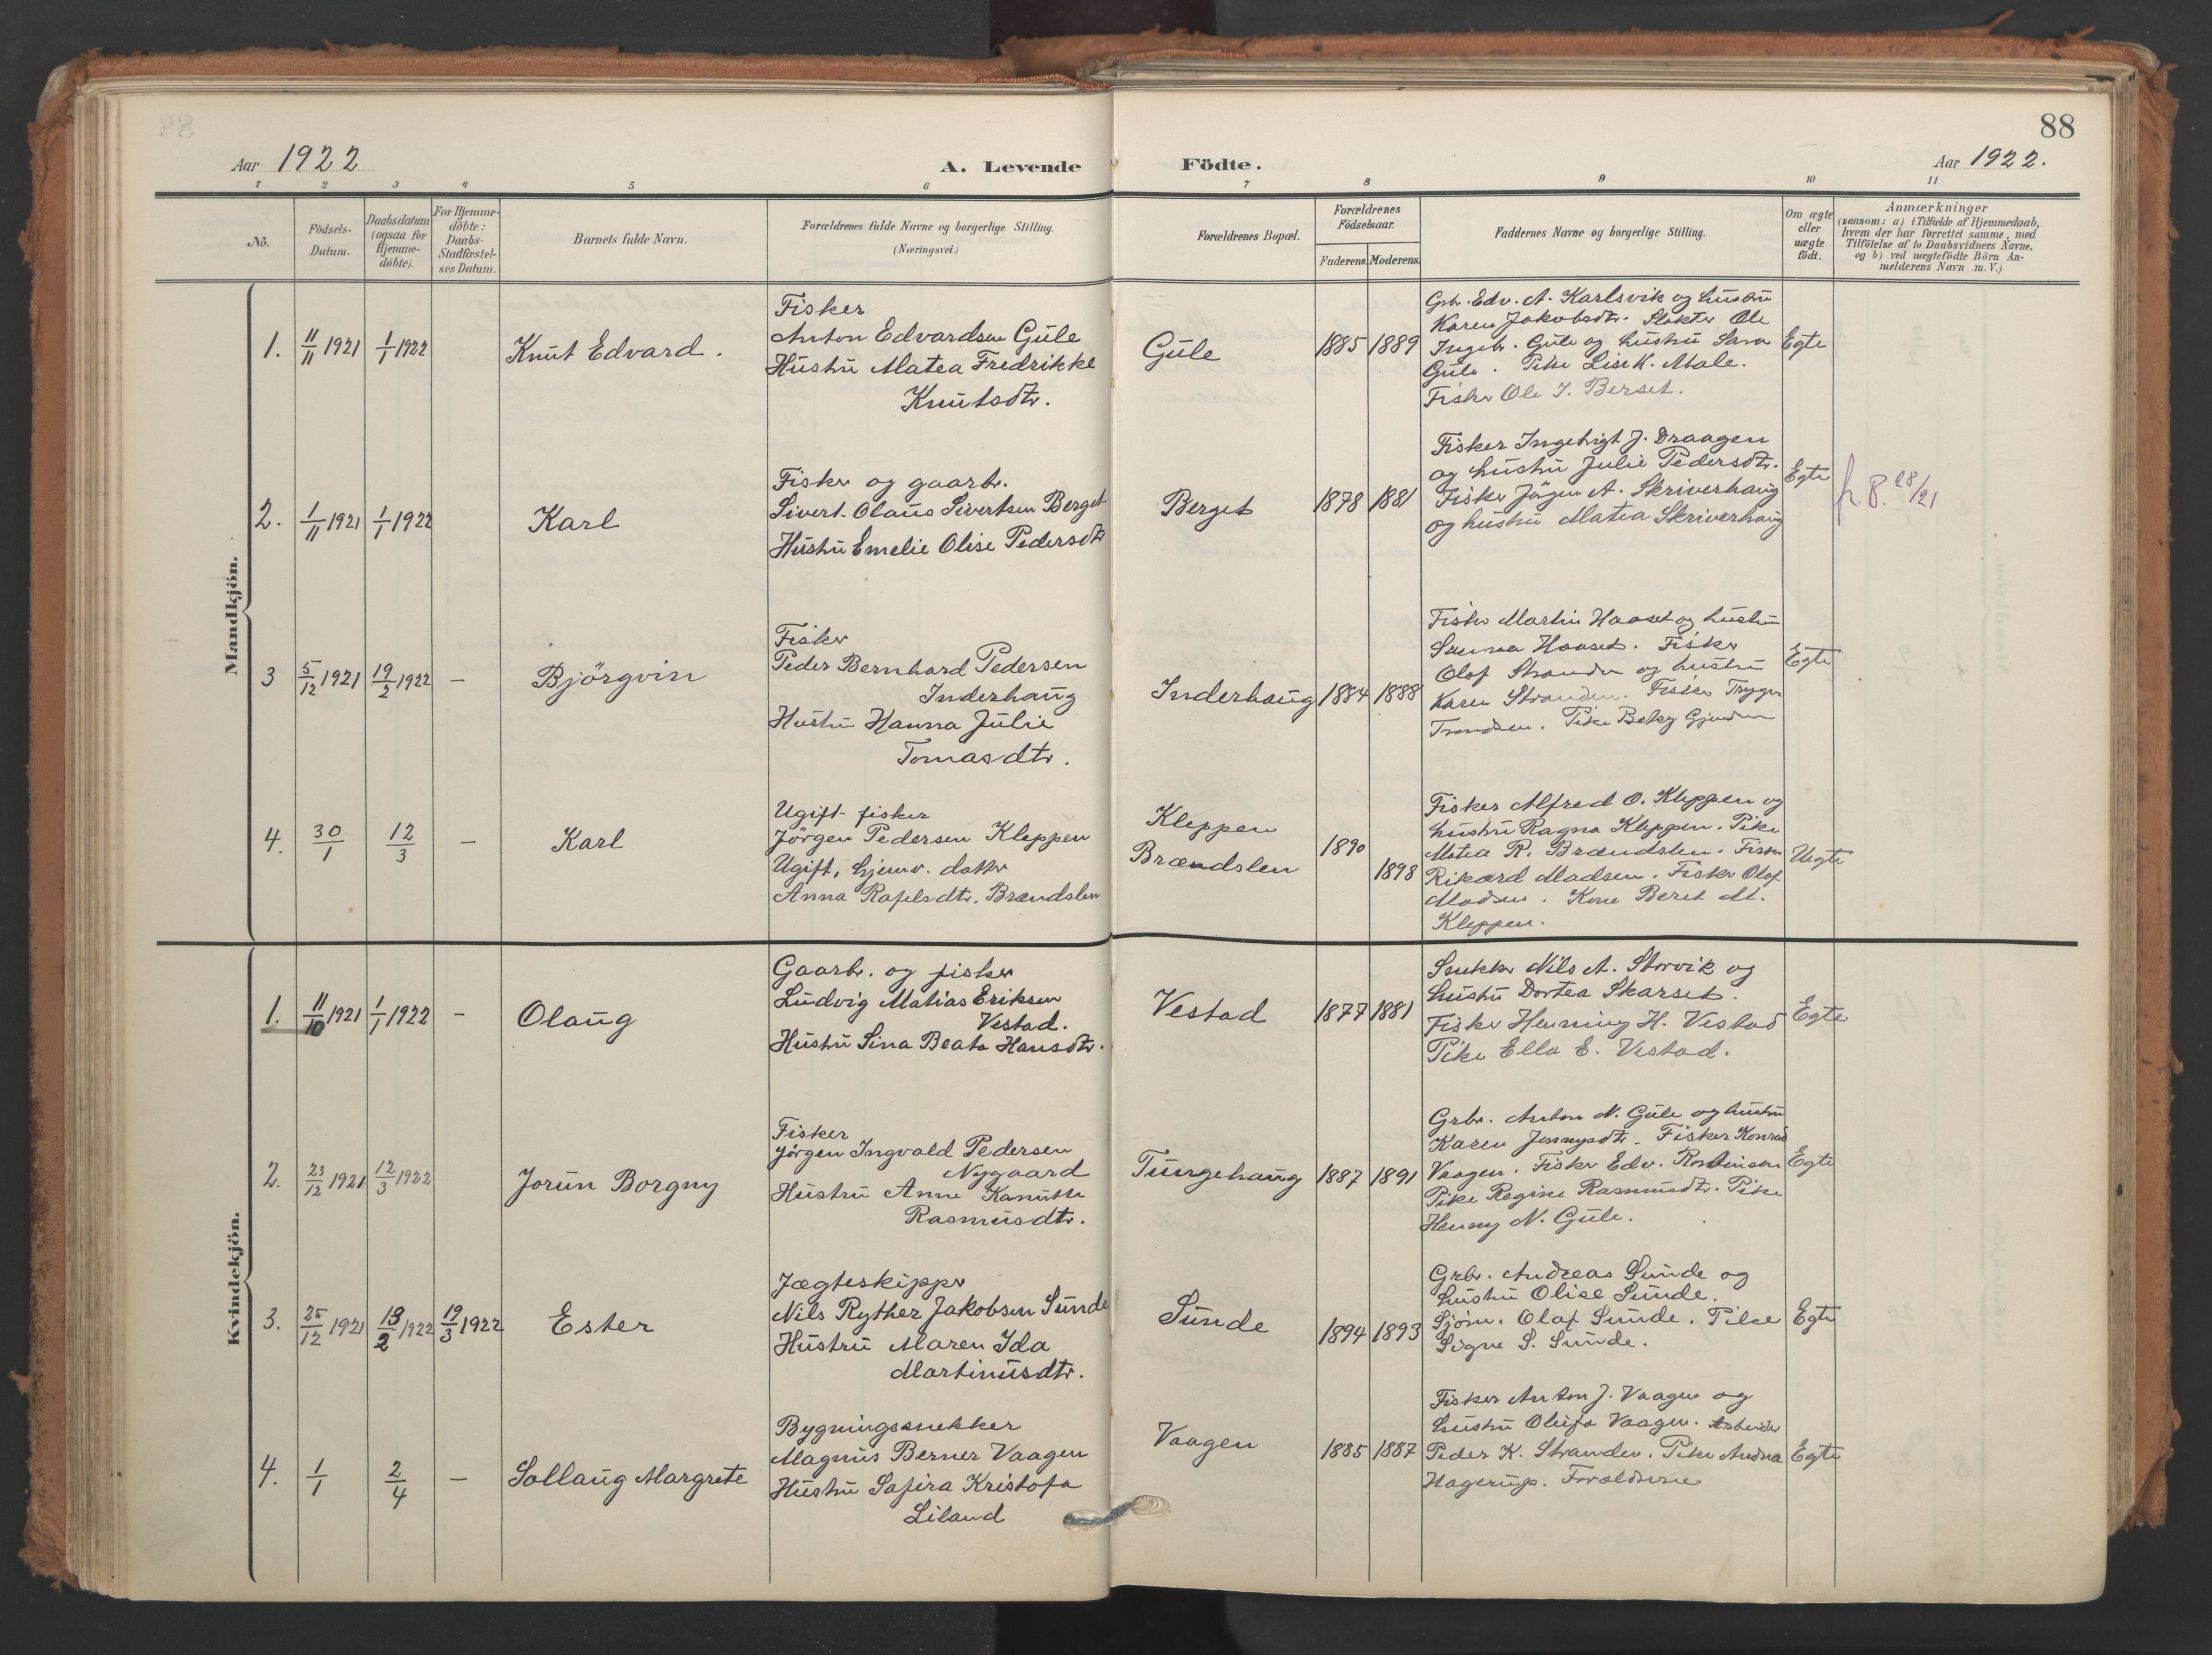 88
Aar 1922
A. Levende Födte.
Aar 1922.
1 2 3 4 5 6 7 8 9 10 11
No.
Födsels-
Datum.
Daabsdatum
(ogsaa for
Hjemme-
döbte).
For Hjemme-
döbte:
Daabs-
Stadfæstel-
ses Datum.
Barnets fulde Navn.
Forældrenes fulde Navne og borgerlige Stilling.
(Næringsvei.)
Forældrenes Bopæl.
Forældrenes
Födselsaar.
Faderens. Moderens.
Faddernes Navne og borgerlige Stilling.
Om ægte
eller
uægte
födt.
Anmærkninger
(saasom: a) i Tilfælde af Hjemmedaab,
hvem der har forrettet samme, med
Tilföielse af to Daabsvidners Navne,
og b) ved uægtefödte Börn An-
melderens Navn m. V.)
Mandkjön.
1. 11/11 1921 1/1 1922
Knut Edvard.
Fisker
Anton Edvardsen Gule
Hustru Matea Fredrikke
Knutsdtr.
Gule
1885 1889
Grbr. Edv. A. Karlsvik og hustru
Karen Jakobsdtr. Slakter Ole
Ingebr. Gule og hustru Sara
Gule. Pike Lise K. Male.
Fisker Ole I. Berset.
Egte
2. 1/11 1921 1/1 1922
Karl
Fisker og gaarbr.
Sivert Olaus Sivertsen Berget
Hustru Emelie Olise Pedersdtr
Berget
1878 1881
Fisker Ingebrigt J. Draagen
og hustru Julie Pedersdtr.
Fisker Jögen A. Skriverhaug
og hustru Matea Skriverhaug
Egte
fr. 8. 28/21
3 5/12 1921 19/2 1922 –
Björgvin
Fisker
Peder Bernhard Pedersen
Inderhaug
Hustru Hanna Julie
Tomasdtr.
Inderhaug
1884 1888
Fisker Martin Haaset og hustru
Sanna Haaset. Fisker
Olaf Stranden og hustru
Karen Stranden. Fisker Trygve
Trondsen. Pike Betsy Gjendem
Egte
4. 30/1 12/3 –
Karl
Ugift fisker
Jörgen Pedersen Kleppen
Ugift, hjemv. datter
Anna Rafelsdtr. Brændslen
Kleppen
Brændslen
1890
1898
Fisker Alfred O. Kleppen og
hustru Ragna Kleppen. Pike
Matea R. Brændslen. Fisker
Rikard Madsen. Fisker Olaf
Madsen. Kone Beret M.
Kleppen.
Uegte
Kvindekjön.
1. 11/10 1921 1/1 1922 –
Olaug
Gaarbr. og fisker
Ludvig Matias Eriksen
Vestad.
Hustru Sina Beate Hansdtr.
Vestad
1877 1881
Snekker Nils A. Storvik og
hustru Dortea Skarset.
Fisker Henning H. Vestad
Pike Ella E. Vestad.
Egte
2. 23/12 1921 12/3 1922
Jorun Borgny
Fisker
Jörgen Ingvald Pedersen
Nygaard
Hustru Anne Kanutte
Rasmusdtr.
Tungehaug
1887 1891
Grbr. Anton N. Gule og hustru
Karen Jennysdtr. Fisker Konrad
Vaagen. Fisker Edv. Robinson
Pike Regine Rasmusdtr. Pike
Henny N. Gule.
Egte
3. 25/12 1921 19/2 1922 19/3 1922
Ester
Jægteskipper
Nils Ryther Jakobsen Sunde
Hustru Maren Ida
Martinusdtr.
Sunde
1894 1893
Grbr. Andreas Sunde og
hustru Olise Sunde.
Sjöm. Olaf Sunde. Pike
Signe S. Sunde.
Egte
4. 1/1 2/4 –
Sollaug Margrete
Bygningssnekker
Magnus Berner Vaagen
Hustru Safira Kristofa
Liland
Vaagen
1885 1887
Fisker Anton J. Vaagen og
hustru Olufa Vaagen. Arbeider
Peder K. Stranden. Pike Andrea
Hagerup. Forældrene
Egte